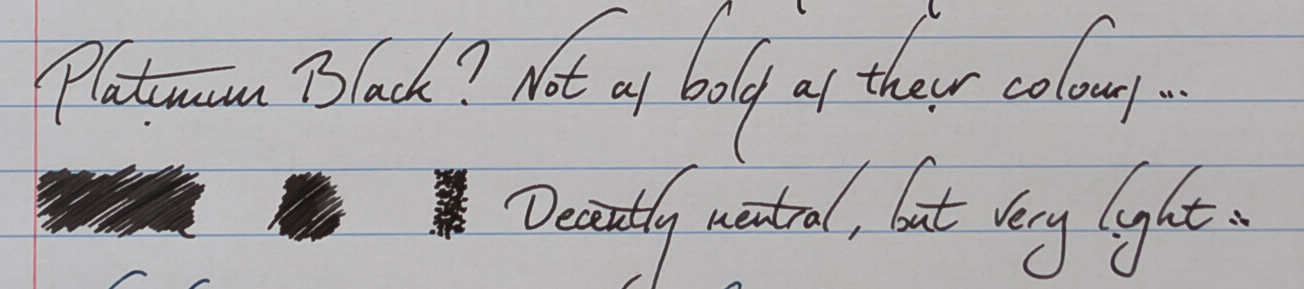 Platinum Black? Not as bold as their colours...
Decently neutral, but very light..